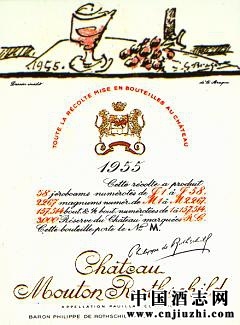 1955.
Dessin inédit
de G. Braque
TOUTE LA RÉCOLTE MISE EN BOUTEILLES AU CHÂTEAU
1955
Cette récolte a produit
58 jéroboams numérotés de G 1 à G 58.
2267 magnums numér. de M 1 à M 2267
157.314 bout. & ½ bout. numérotées de 1 à 157.314
3000 Réserve du Château marquées R.C.
Cette bouteille porte le No M.
Philippe de Rothschild
Château
Mouton Rothschild
APPELLATION PAUILLAC
BARON PHILIPPE DE ROTHSCHILD
中国酒志网
www.cnjiuzhi.com